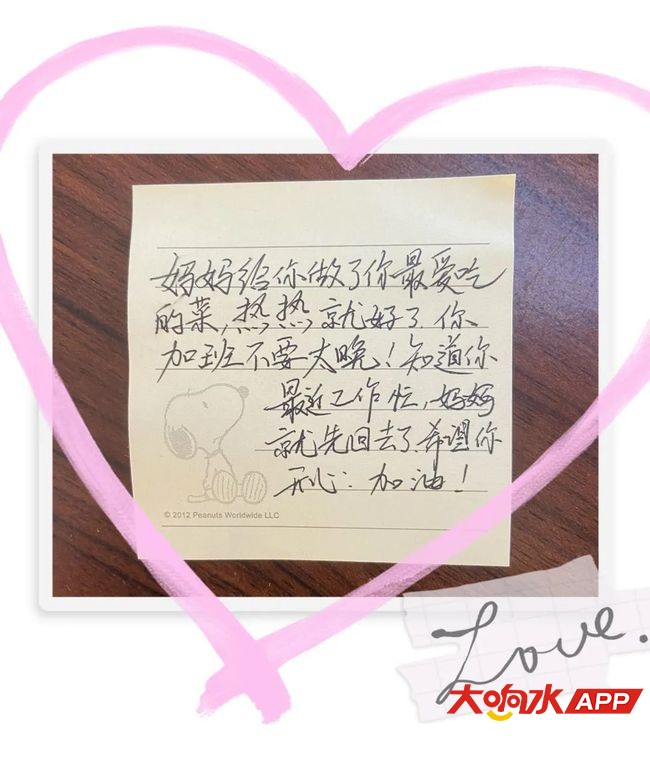 妈妈给你做了你最爱吃
的菜,热热就好了.你
加班不要太晚!知道你
最近工作忙,妈妈
就先回去了.希望你
开心:加油!
© 2012 Peanuts Worldwide LLC
Love.
大响水APP